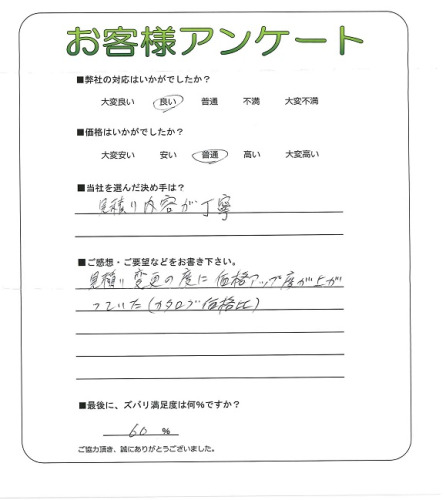 お客様アンケート
■弊社の対応はいかがでしたか？
大変良い 良い 普通 不満 大変不満
■価格はいかがでしたか？
大変安い 安い 普通 高い 大変高い
■当社を選んだ決め手は？
見積り内容が丁寧
■ご感想・ご要望などをお書き下さい。
見積り変更の度に価格アップ度が上が
っていた(カタログ価格比)
■最後に、ズバリ満足度は何％ですか？
60 %
ご協力頂き、誠にありがとうございました。